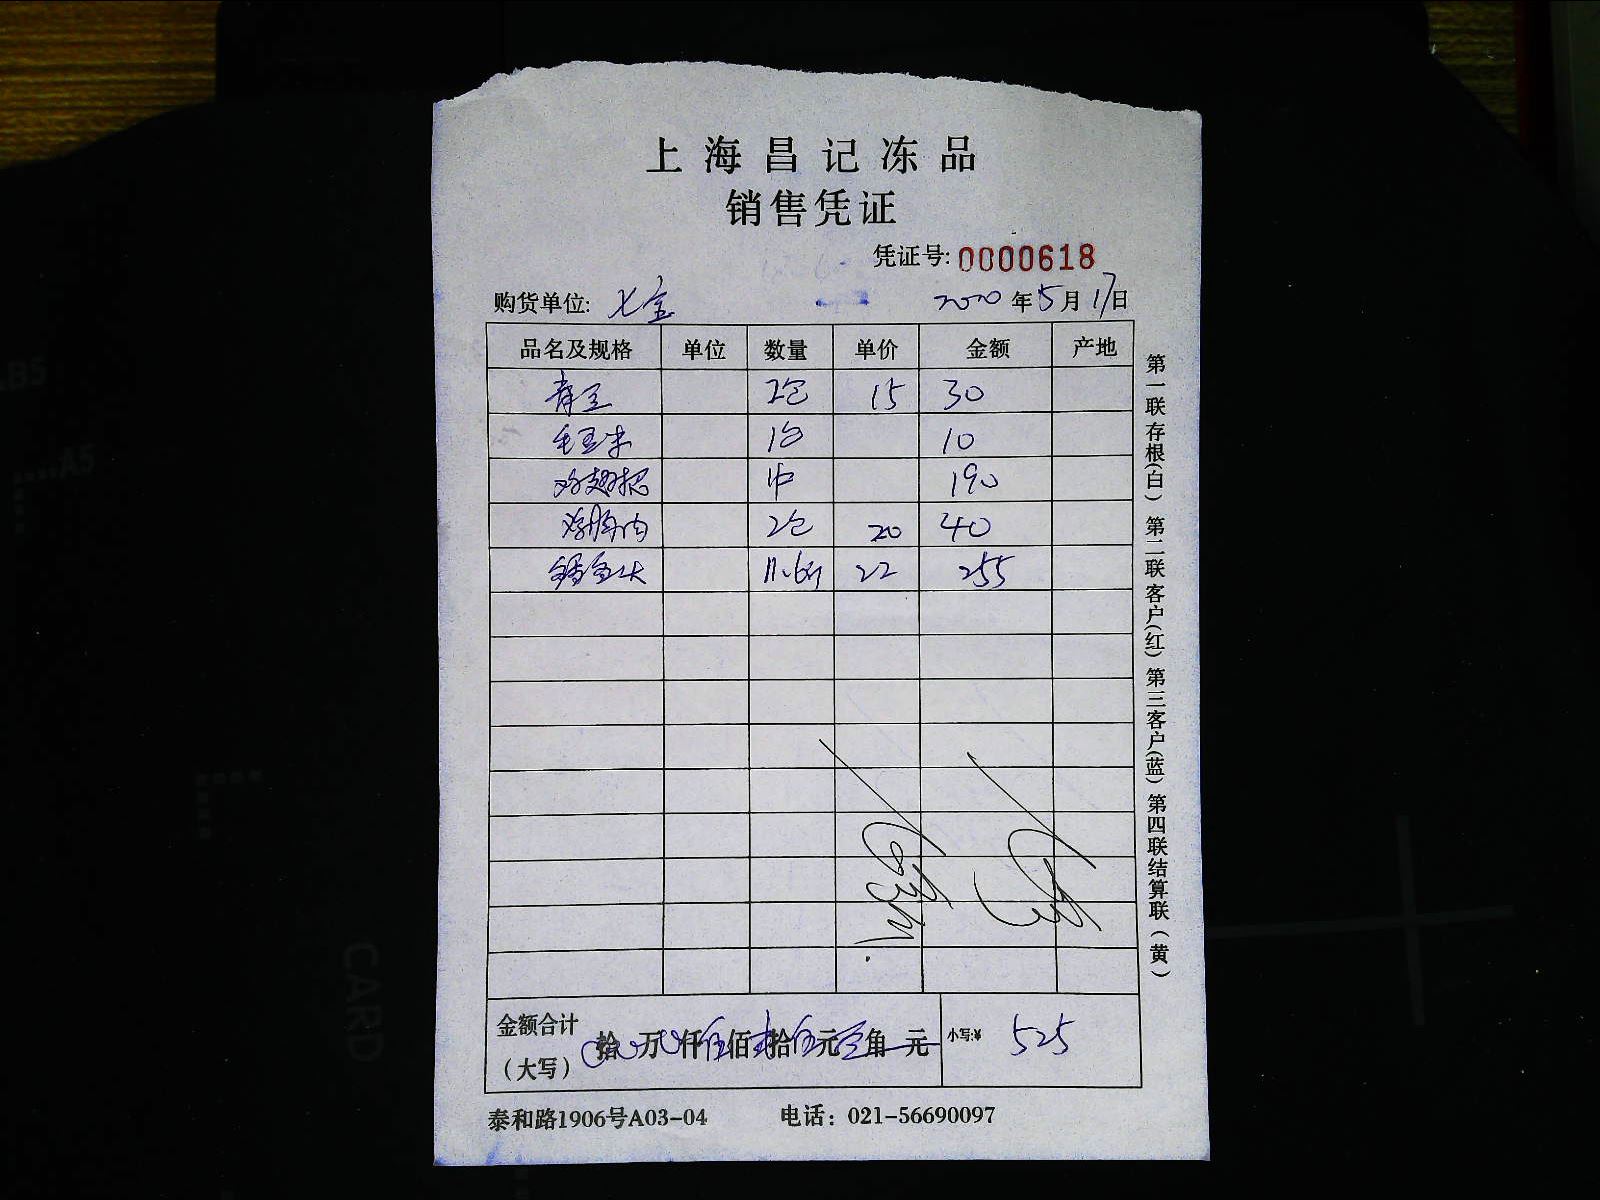 上海昌记冻品
销售凭证
凭证号: 0000618
购货单位: 七宝 2020年5月17日
品名及规格 单位 数量 单价 金额 产地
青豆 2包 15 30
毛豆米 1包 10
鸡翅根 1件 190
鸡胸肉 2包 20 40
22 255
金额合计
(大写) 拾 万 仟 伍 佰 拾 伍 元 角 元 小写:¥ 525
泰和路1906号A03-04 电话: 021-56690097
第一联存根(白) 第二联客户(红) 第三客户(蓝) 第四联结算联(黄)